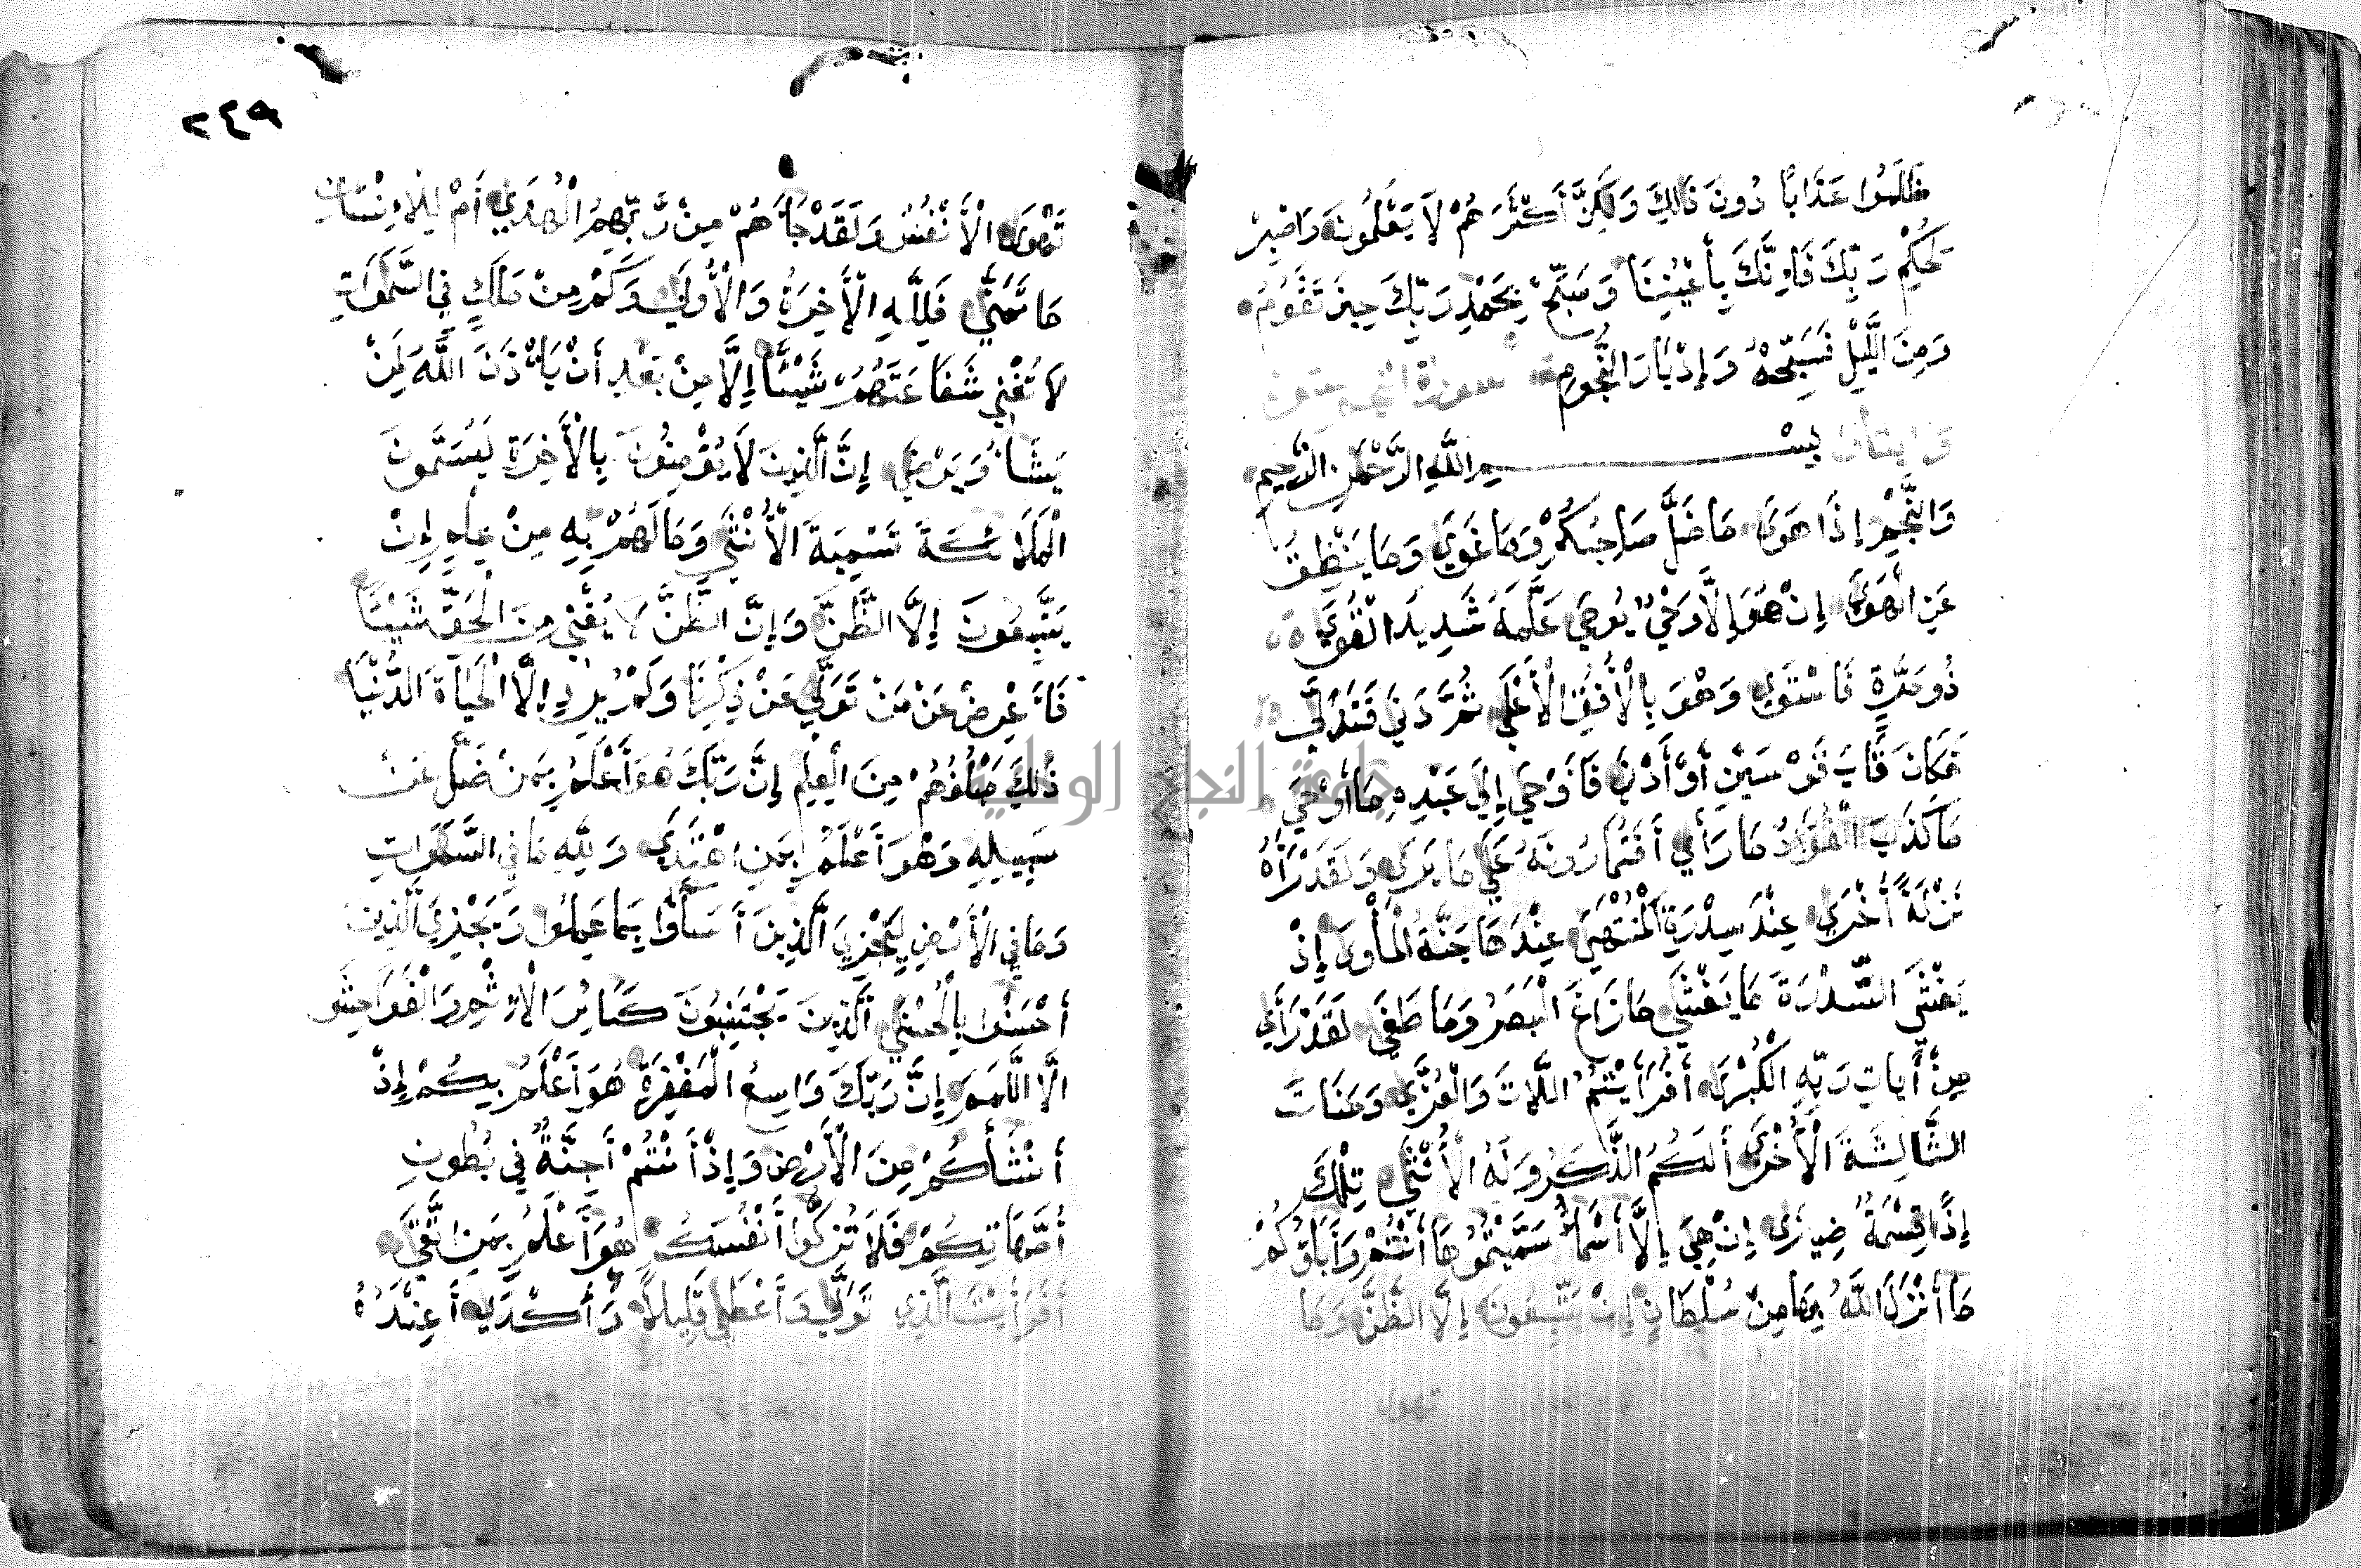 ظَلَمُوا عَذَابًا دُونَ ذَالِكَ وَلَكِنَّ أَكْثَرَهُمْ لَا يَعْلَمُونَ وَاصْبِرْ
لِحُكْمِ رَبِّكَ فَإِنَّكَ بِأَعْيُنِنَا وَسَبِّحْ بِحَمْدِ رَبِّكَ حِينَ تَقُومُ
وَمِنَ اللَّيْلِ فَسَبِّحْهُ وَإِدْبَارَ النُّجُومِ سورة النجم ستون
بِسْمِ اللَّهِ الرَّحْمَنِ الرَّحِيمِ
وَالنَّجْمِ إِذَا هَوَى مَا ضَلَّ صَاحِبُكُمْ وَمَا غَوَى وَمَا يَنْطِقُ
عَنِ الْهَوَى إِنْ هُوَ إِلَّا وَحْيٌ يُوحَى عَلَّمَهُ شَدِيدُ الْقُوَى
ذُو مِرَّةٍ فَاسْتَوَى وَهْوَ بِالْأُفُقِ الْأَعْلَى ثُمَّ دَنَى فَتَدَلَّى
فَكَانَ قَابَ قَوْسَيْنِ أَوْ أَدْنَى فَأَوْحَى إِلَى عَبْدِهِ مَا أَوْحَى
مَا كَذَبَ الْفُؤَادُ مَا رَأَى أَفَتُمَارُونَهُ عَلَى مَا يَرَى وَلَقَدْ رَآهُ
نَزْلَةً أُخْرَى عِنْدَ سِدْرَةِ الْمُنْتَهَى عِنْدَهَا جَنَّةُ الْمَأْوَى إِذْ
يَغْشَى السِّدْرَةَ مَا يَغْشَى مَا زَاغَ الْبَصَرُ وَمَا طَغَى لَقَدْ رَأَى
مِنْ أَيَاتِ رَبِّهِ الْكُبْرَى أَفَرَأَيْتُمُ اللَّاتَ وَالْعُزَّى وَمَنَاتَ
الثَّالِثَةَ الْأُخْرَى أَلَكُمُ الذَّكَرُ وَلَهُ الْأُنْثَى تِلْكَ
إِذًا قِسْمَةٌ ضِيزَى إِنْ هِيَ إِلَّا أَسْمَاءٌ سَمَّيْتُمُوهَا أَنْتُمْ وَآبَاؤُكُمْ
مَا أَنْزَلَ اللَّهُ بِهَا مِنْ سُلْطَانٍ إِنْ يَتَّبِعُونَ إِلَّا الظَّنَّ وَمَا
تهوى
٢٤٩
تَهْوَى الْأَنْفُسُ وَلَقَدْ جَاءَهُمْ مِنْ رَّبِّهِمُ الْهُدَى أَمْ لِلْإِنْسَانِ
مَا تَمَنَّى فَلِلَّهِ الْأَخِرَةُ وَالْأُولَى وَكَمْ مِنْ مَلَكٍ فِي السَّمَوَاتِ
لَا تُغْنِي شَفَاعَتُهُمْ شَيْئًا إِلَّا مِنْ بَعْدِ أَنْ يَأْذَنَ اللَّهُ لِمَنْ
يَشَاءُ وَيَرْضَى إِنَّ الَّذِينَ لَا يُؤْمِنُونَ بِالْأَخِرَةِ لَيُسَمُّونَ
الْمَلَائِكَةَ تَسْمِيَةَ الْأُنْثَى وَمَا لَهُمْ بِهِ مِنْ عِلْمٍ إِنْ
يَتَّبِعُونَ إِلَّا الظَّنَّ وَإِنَّ الظَّنَّ لَا يُغْنِي مِنَ الْحَقِّ شَيْئًا
فَأَعْرِضْ عَنْ مَنْ تَوَلَّى عَنْ ذِكْرِنَا وَلَمْ يُرِدْ إِلَّا الْحَيَاةَ الدُّنْيَا
ذَلِكَ مَبْلَغُهُمْ مِنَ الْعِلْمِ إِنَّ رَبَّكَ هُوَ أَعْلَمُ بِمَنْ ضَلَّ عَنْ
سَبِيلِهِ وَهْوَ أَعْلَمُ بِمَنِ اهْتَدَى وَلِلَّهِ مَا فِي السَّمَوَاتِ
وَمَا فِي الْأَرْضِ لِيَجْزِيَ الَّذِينَ أَسَاءُوا بِمَا عَمِلُوا وَيَجْزِيَ الَّذِينَ
أَحْسَنُوا بِالْحُسْنَى الَّذِينَ يَجْتَنِبُونَ كَبَائِرَ الْإِثْمِ وَالْفَوَاحِشَ
إِلَّا اللَّمَمَ إِنَّ رَبَّكَ وَاسِعُ الْمَغْفِرَةِ هُوَ أَعْلَمُ بِكُمْ إِذْ
أَنْشَأَكُمْ مِنَ الْأَرْضِ وَإِذْ أَنْتُمْ أَجِنَّةٌ فِي بُطُونِ
أُمَّهَاتِكُمْ فَلَا تُزَكُّوا أَنْفُسَكُمْ هُوَ أَعْلَمُ بِمَنِ اتَّقَى
أَفَرَأَيْتَ الَّذِي تَوَلَّى وَأَعْطَى قَلِيلًا وَأَكْدَى أَعِنْدَهُ
جامعة النجاح الوطنية